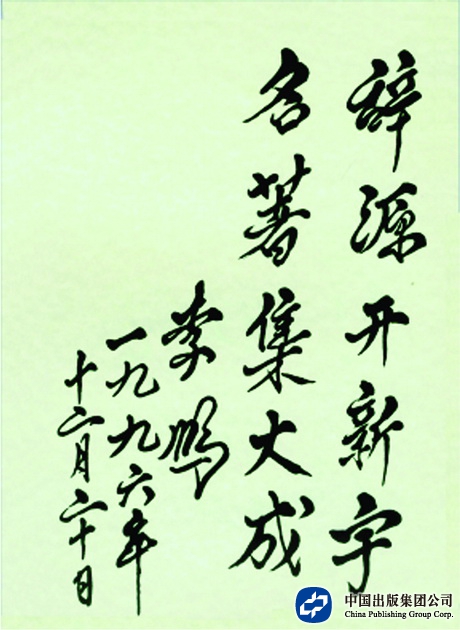 辞源开新宇
名著集大成
李鹏
一九九六年
十二月二十日
中国出版集团公司
China Publishing Group Corp.